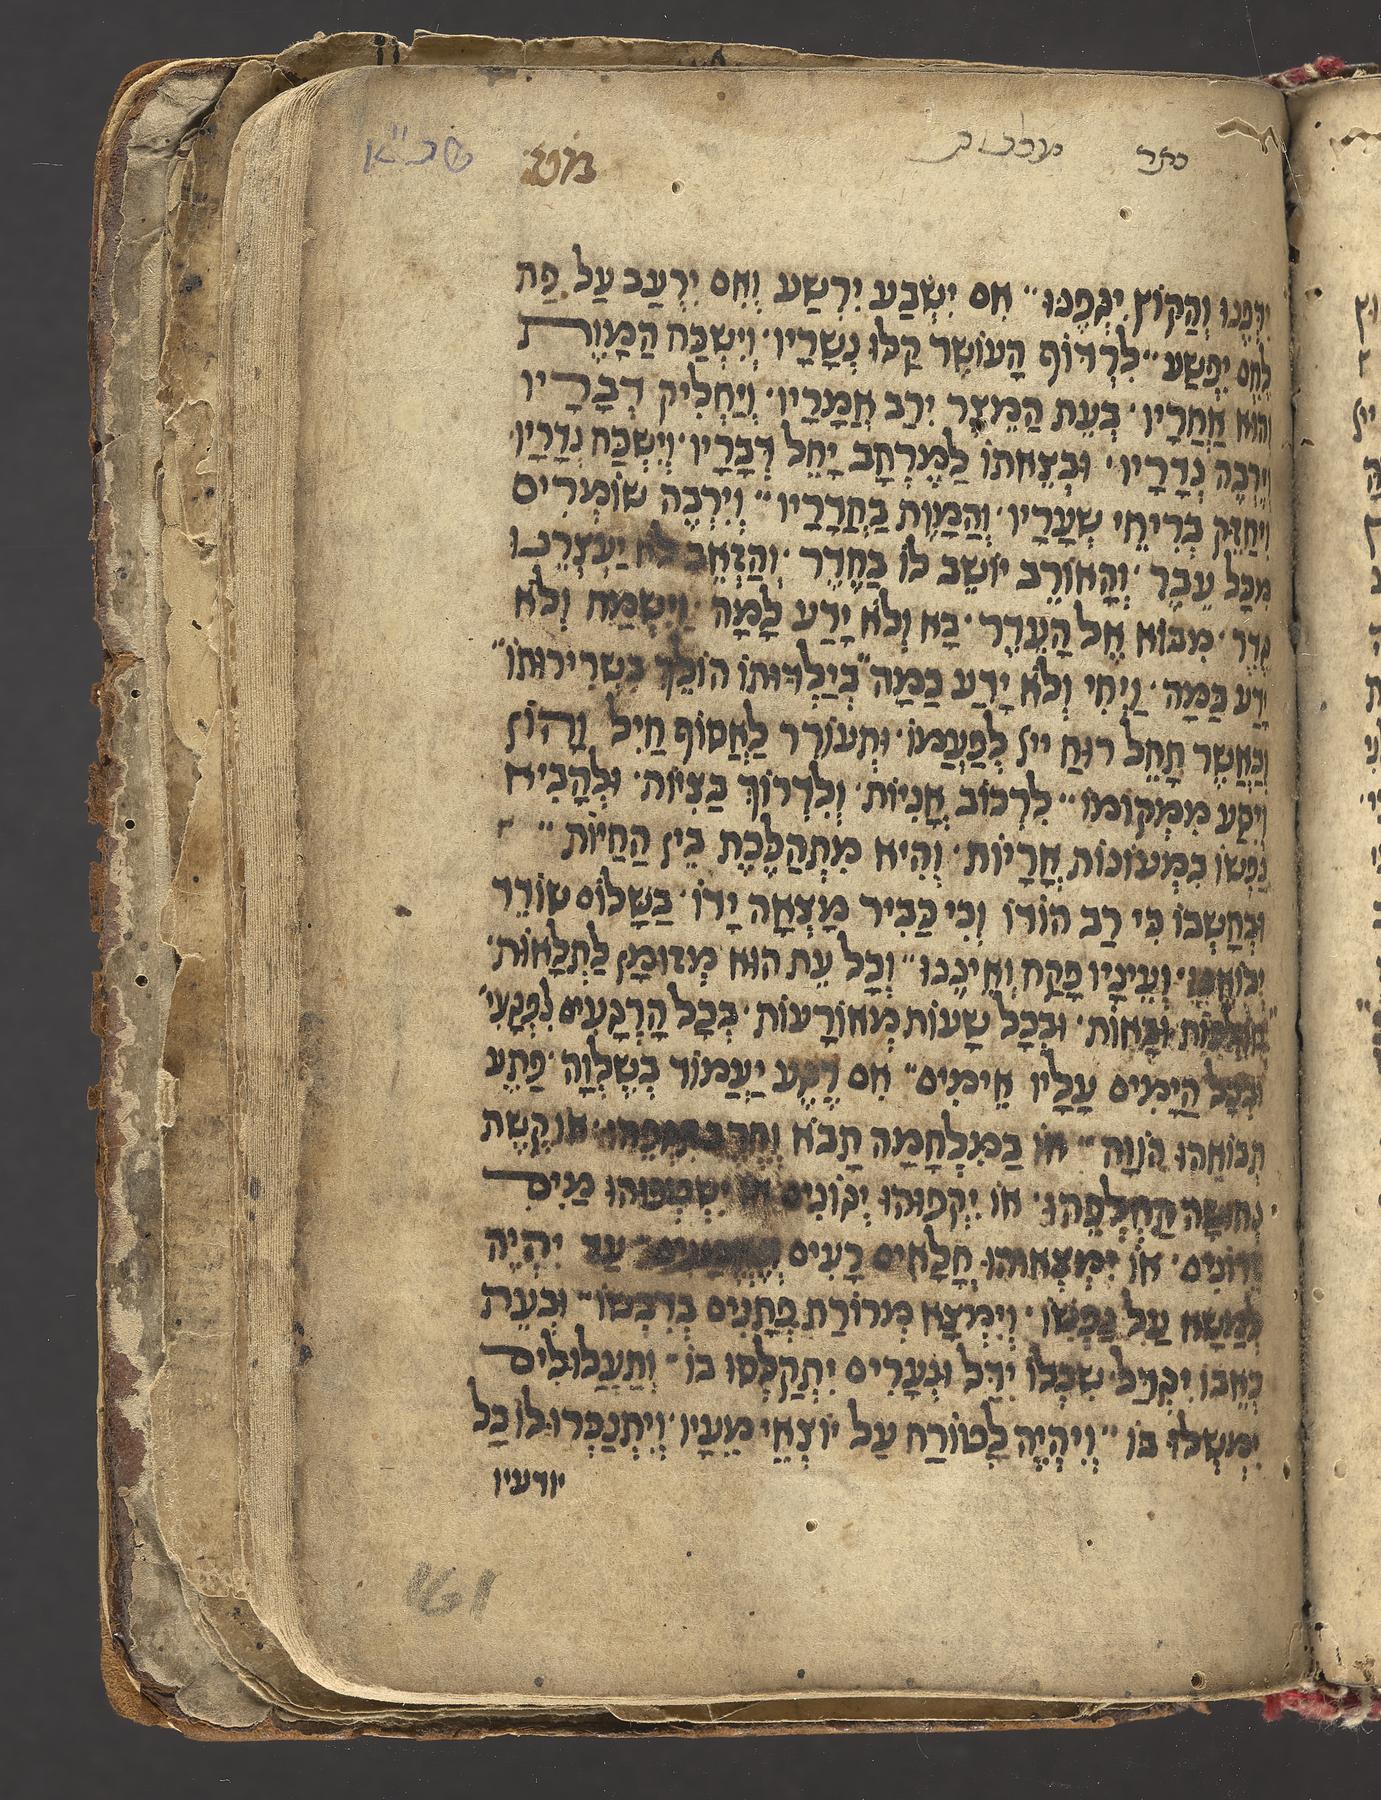 כתר מלכות
שכ"א
יִרְפֶנוּ וְהַקּוֹץ יִגְּפֶנּוּ״ אִם יִשְׂבַּע יִרְשַׁע וְאִם יִרְעַב עַל פַּת
לֶחֶם יִפְשַׁע״ לִרְדּוֹף הָעוֹשֶׁר קַלּוּ נְשָׁרָיו׳ וְיִשְׁכַּח הַמָּוֶת
וְהוּא אַחֲרָיו׳ בְּעֵת הַמֵּצֶר יִרַב אֲמָרָיו׳ וְיַחְלִיק דְּבָרָיו
וְיַרְבֶּה נְדָרָיו׳ וּבְצֵאתוֹ לַמֶּרְחָב יָחֵל דְּבָרָיו׳ וְיִשְׁכַּח נְדָרָיו׳
וִיחַזֵּק בְּרִיחֵי שְׁעָרָיו׳ וְהַמָּוֶת בַּחֲדָרָיו״ וְיַרְבֶּה שׁוֹמְרִים
מִכָּל עֵבֶר׳ וְהָאוֹרֵב יוֹשֵׁב לוֹ בַּחֶדֶר׳ וְהַזְּאֵב לֹא יַעַצְרֶנּוּ
גֶדֶר׳ מִבּוֹא אֶל הָעֵדֶר׳ בָּא וְלֹא יָדַע לָמָּה׳ וַיִּשְׂמַח וְלֹא
יָדַע בַּמָּה׳ וַיְחִי וְלֹא יָדַע כַּמָּה״ בְּיַלְדוּתוֹ הוֹלֵךְ בִּשְׁרִירוּתוֹ״
וְכַאֲשֶׁר תָּחֵל רוּחַ ייי לְפַעֲמוֹ׳ וּתְעוֹרֵר לֶאֱסוֹף חַיִל וָהוֹן
וְיִסַּע מִמְּקוֹמוֹ״ לִרְכּוֹב אֳנִיּוֹת׳ וְלִדְרוֹךְ בַּצִּיּוֹת׳ וּלְהָבִיא
נַפְשׁוֹ בִּמְעוֹנוֹת אֲרָיוֹת׳ וְהִיא מִתְהַלֶּכֶת בֵּין הַחַיּוֹת״
וּבְחָשְׁבוֹ כִּי רַב הוֹדוֹ וְכִי כַבִּיר מָצְאָה יָדוֹ׳ בַּשָּׁלוֹם שׁוֹדֵד
יְבוֹאֶנּוּ׳ וְעֵינָיו פָּקַח וְאֵינֶנּוּ״ וּבְכָל עֵת הוּא מְזוּמָּן לַתְּלָאוֹת׳
חוֹלְפוֹת וּבָאוֹת׳ וּבְכָל שָׁעוֹת מְאוֹרָעוֹת׳ בְּכָל הָרְגָעִים לִפְגָעִי׳
וּבְכָל הַיָּמִים עָלָיו אֵימִים״ אִם רֶגַע יַעֲמוֹד בְּשַׁלְוָה׳ פֶּתַע
תְּבוֹאֵהוּ הוֹוָה״ אוֹ בַּמִּלְחָמָה תָבֹא וְחֶרֶב תִּגְּפֵהוּ׳ אוֹ קֶשֶׁת
נְחוּשָׁה תַּחְלְפֵהוּ׳ אוֹ יַקִּיפוּהוּ יְגוֹנִים אוֹ יִשְׁטְפוּהוּ מַיִם
זֵידוֹנִים׳ אוֹ יִמְצָאוּהוּ חֳלָאִים רָעִים עַד יִהְיֶה
לְמַשָּׂא עַל נַפְשׁוֹ׳ וְיִמְצָא מְרוֹרַת פְּתָנִים בְּדִבְשׁוֹ״ וּבְעֵת
כְּאֵבוֹ יִגְדַּל שִׂכְלוֹ יִדַּל וּנְעָרִים יִתְקַלְּסוּ בוֹ׳ וְתַעֲלוּלִים
יִמְשְׁלוּ בוֹ״ וְיִהְיֶה לְטוֹרַח עַל יוֹצְאֵי מֵעָיו׳ וְיִתְנַכְּרוּ לוֹ כָּל
יודעיו
161